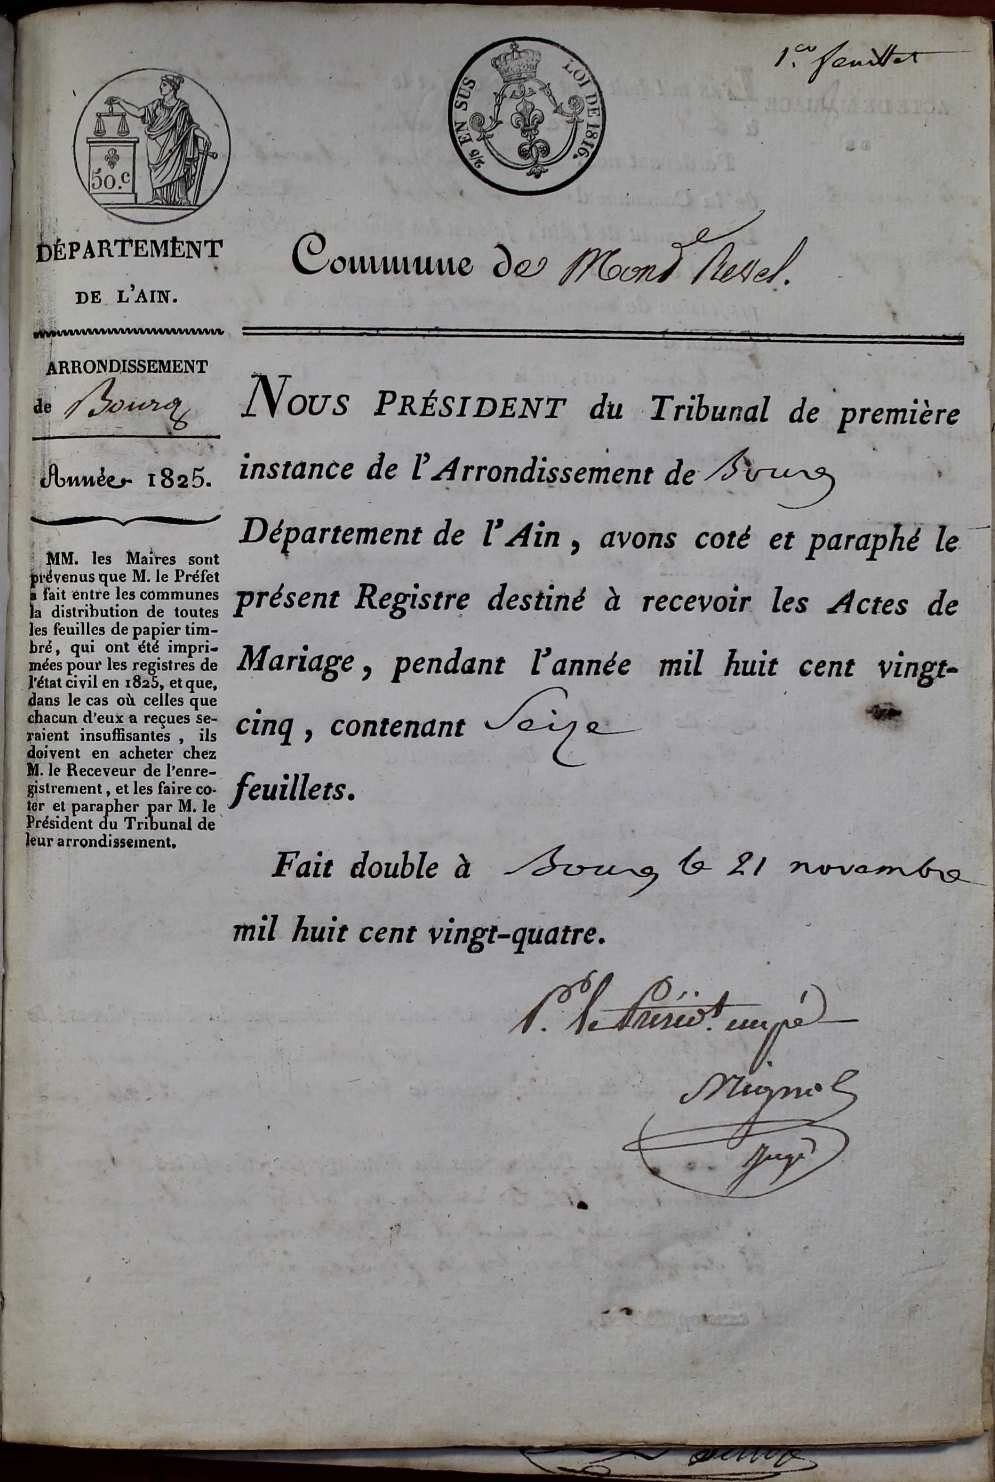 1.er feuillet
50.c
2/5 EN SUS
LOI DE 1816.
DÉPARTEMENT
DE L'AIN.
Commune de Mond Revel.
ARRONDISSEMENT
de Bourg
Année 1825.
MM. les Maires sont
prévenus que M. le Préfet
a fait entre les communes
la distribution de toutes
les feuilles de papier tim-
bré, qui ont été impri-
mées pour les registres de
l'état civil en 1825, et que,
dans le cas où celles que
chacun d'eux a reçues se-
raient insuffisantes, ils
doivent en acheter chez
M. le Receveur de l'enre-
gistrement, et les faire co-
ter et parapher par M. le
Président du Tribunal de
leur arrondissement.
NOUS PRÉSIDENT du Tribunal de première
instance de l'Arrondissement de Bourg
Département de l'Ain, avons coté et paraphé le
présent Registre destiné à recevoir les Actes de
Mariage, pendant l'année mil huit cent vingt-
cinq, contenant Seize
feuillets.
Fait double à Bourg le 21 novembre
mil huit cent vingt-quatre.
P.r le Présid.t empé
Mignot
Juge